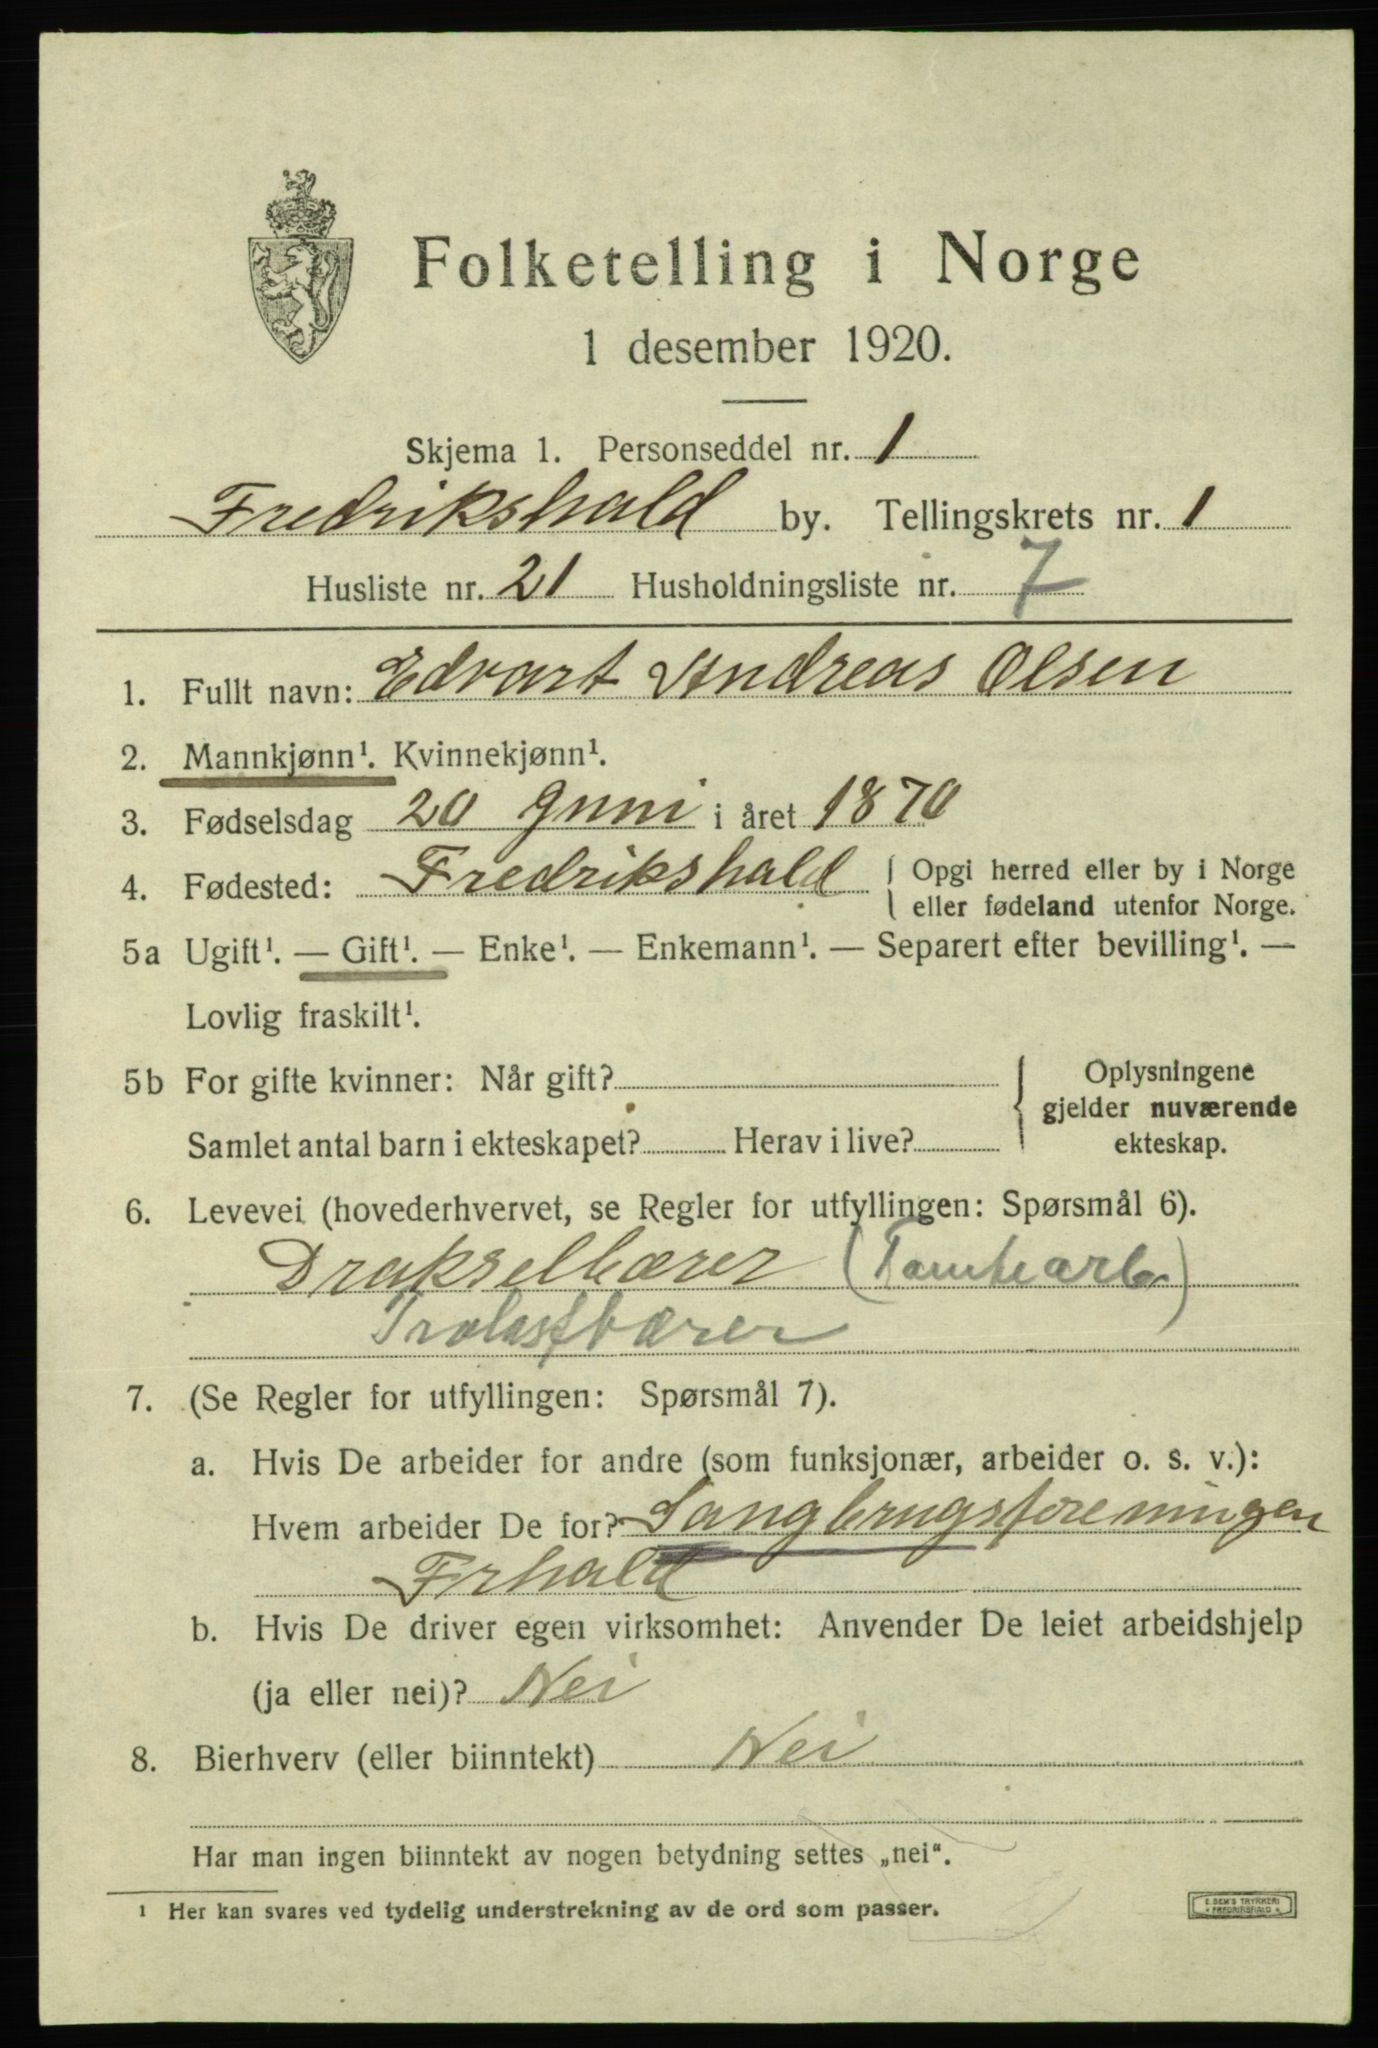 Folketelling i Norge
1 desember 1920.
Skjema 1. Personseddel nr. 1
Fredrikshald by. Tellingskrets nr. 1
Husliste nr. 21 Husholdningsliste nr. 7
1. Fullt navn: Edvart Andreas Olsen
2. Mannkjønn¹. Kvinnekjønn¹.
3. Fødselsdag 20 Juni i året 1870
4. Fødested: Fredrikshald { Opgi herred eller by i Norge
eller fødeland utenfor Norge.
5a Ugift¹. — Gift¹. — Enke¹. — Enkemann¹. — Separert efter bevilling¹. —
Lovlig fraskilt¹.
5b For gifte kvinner: Når gift?
Samlet antal barn i ekteskapet? Herav i live?
Oplysningene
gjelder nuværende
ekteskap.
6. Levevei (hovederhvervet, se Regler for utfyllingen: Spørsmål 6).
Drakselbærer (Tomtearb)
Tralastbærer
7. (Se Regler for utfyllingen: Spørsmål 7).
a. Hvis De arbeider for andre (som funksjonær, arbeider o. s. v.):
Hvem arbeider De for? Sangbrugsforeningen
Frhald
b. Hvis De driver egen virksomhet: Anvender De leiet arbeidshjelp
(ja eller nei)? Nei
8. Bierhverv (eller biinntekt) Nei
Har man ingen biinntekt av nogen betydning settes „nei“.
¹ Her kan svares ved tydelig understrekning av de ord som passer.
E. SEM'S TRYKKERI
FREDRIKSHALD